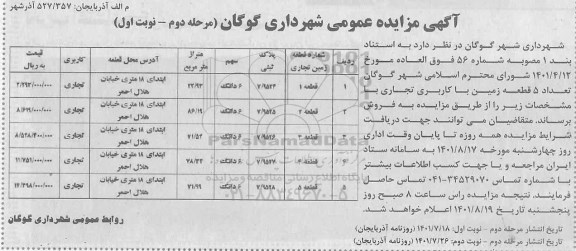 م الف آذربایجان: ۵۲۷/۳۵۷ آذرشهر
آگهی مزایده عمومی شهرداری گوگان (مرحله دوم - نوبت اول)
شهرداری شهر گوگان در نظر دارد به استناد
بند ۱ مصوبه شماره ۵۶ فوق العاده مورخ
۱۴۰۱/۴/۱۲ شورای محترم اسلامی شهر گوگان
تعداد ۵ قطعه زمین با کاربری تجاری با
مشخصات زیر را از طریق مزایده به فروش
برساند. متقاضیان می توانند جهت دریافت
شرایط مزایده همه روزه تا پایان وقت اداری
روز چهارشنبه مورخه ۱۴۰۱/۸/۱۷ به سامانه ستاد
ایران مراجعه و یا جهت کسب اطلاعات بیشتر
با شماره تماس ۳۴۵۲۹۰۷۰-۰۴۱ تماس حاصل
فرمایند. نتیجه مزایده راس ساعت ۸ صبح روز
پنجشنبه تاریخ ۱۴۰۱/۸/۱۹ اعلام خواهد شد.
تاریخ انتشار مرحله دوم - نوبت اول: ۱۴۰۱/۷/۱۸ (روزنامه آذربایجان)
تاریخ انتشار مرحله دوم - نوبت دوم: ۱۴۰۱/۷/۲۶ (روزنامه آذربایجان)
ردیف شماره قطعه زمین تجاری پلاک ثبتی سهم متراژ متر مربع آدرس محل قطعه کاربری قیمت به ریال
۱ قطعه ۱ ۶ دانگ ابتدای ۱۸ متری خیابان هلال احمر تجاری
۲ قطعه ۲ ۶ دانگ ۸۶/۱۹ ابتدای ۱۸ متری خیابان هلال احمر تجاری
۳ قطعه ۳ ۶ دانگ ۷۱/۵۲ ابتدای ۱۸ متری خیابان هلال احمر تجاری
۴ قطعه ۴ ۶ دانگ ابتدای ۱۸ متری خیابان هلال احمر تجاری ۱۱/۷۵۱/۰۰۰/۰۰۰
۵ قطعه ۵ ۶ دانگ ۷۱/۹۹ ابتدای ۱۸ متری خیابان هلال احمر تجاری ۱۴/۳۹۸/۰۰۰/۰۰۰
روابط عمومی شهرداری گوگان
ParsNamadData